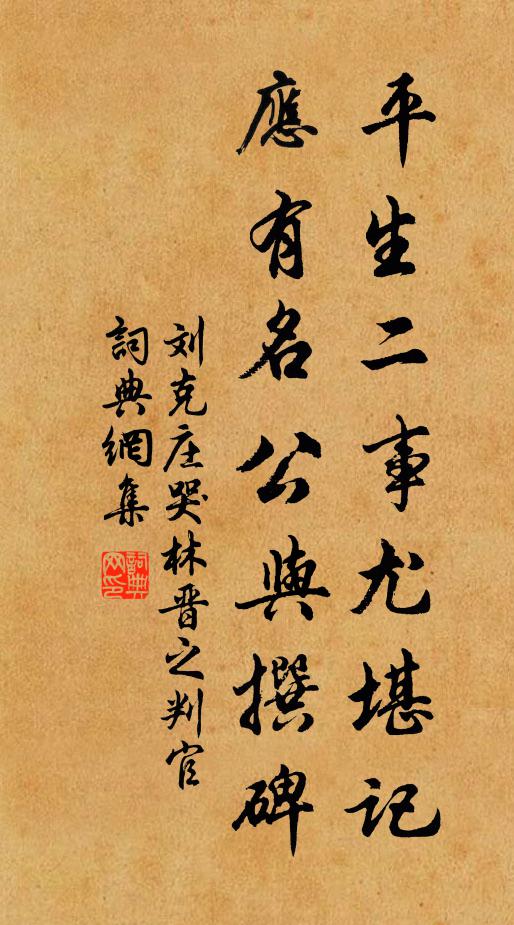 平生二事尤堪記
應有名公與撰碑
刘克庄哭林晋之判官
詞典網集
詞典网印